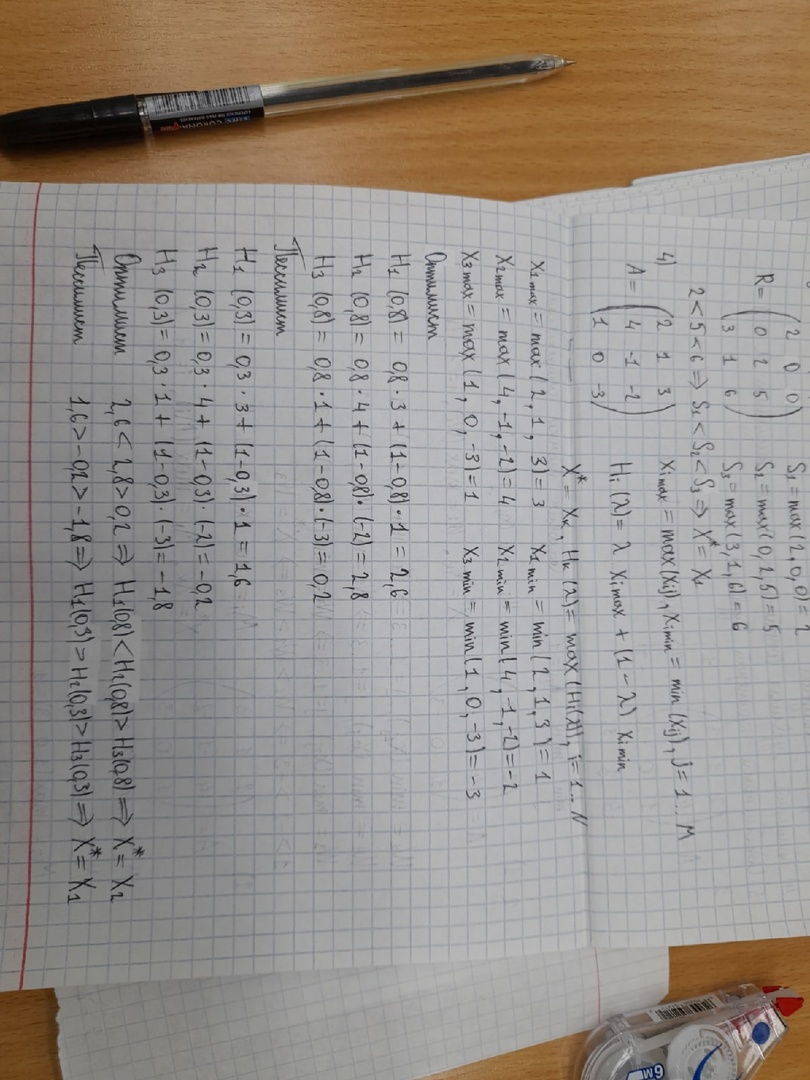 R = ( 2 0 0
0 2 5
3 1 6 )
S₁ = max(2,0,0) = 2
S₂ = max(0,2,5) = 5
S₃ = max(3,1,6) = 6
2 < 5 < 6 => S₁ < S₂ < S₃ => X* = X₁
4)
A = ( 2 1 3
4 -1 -2
1 0 -3 )
Xᵢmax = max(Xᵢⱼ), Xᵢmin = min(Xᵢⱼ), j = 1...M
Hᵢ(λ) = λ Xᵢmax + (1-λ) Xᵢmin
X* = Xₖ, Hₖ(λ) = max(Hᵢ(λ)), i = 1..N
X₁max = max(2,1,3) = 3 X₁min = min(2,1,3) = 1
X₂max = max(4,-1,-2) = 4 X₂min = min(4,-1,-2) = -2
X₃max = max(1,0,-3) = 1 X₃min = min(1,0,-3) = -3
Оптимист
H₁(0,8) = 0,8·3 + (1-0,8)·1 = 2,6
H₂(0,8) = 0,8·4 + (1-0,8)·(-2) = 2,8
H₃(0,8) = 0,8·1 + (1-0,8)·(-3) = 0,2
Пессимист
H₁(0,3) = 0,3·3 + (1-0,3)·1 = 1,6
H₂(0,3) = 0,3·4 + (1-0,3)·(-2) = -0,2
H₃(0,3) = 0,3·1 + (1-0,3)·(-3) = -1,8
Оптимист 2,6 < 2,8 > 0,2 => H₁(0,8) < H₂(0,8) > H₃(0,8) => X* = X₂
Пессимист 1,6 > -0,2 > -1,8 => H₁(0,3) > H₂(0,3) > H₃(0,3) => X* = X₁
6M